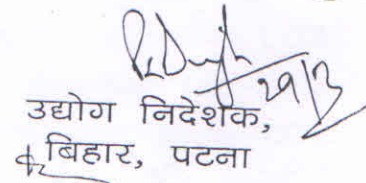 29/3
उद्योग निदेशक,
बिहार, पटना